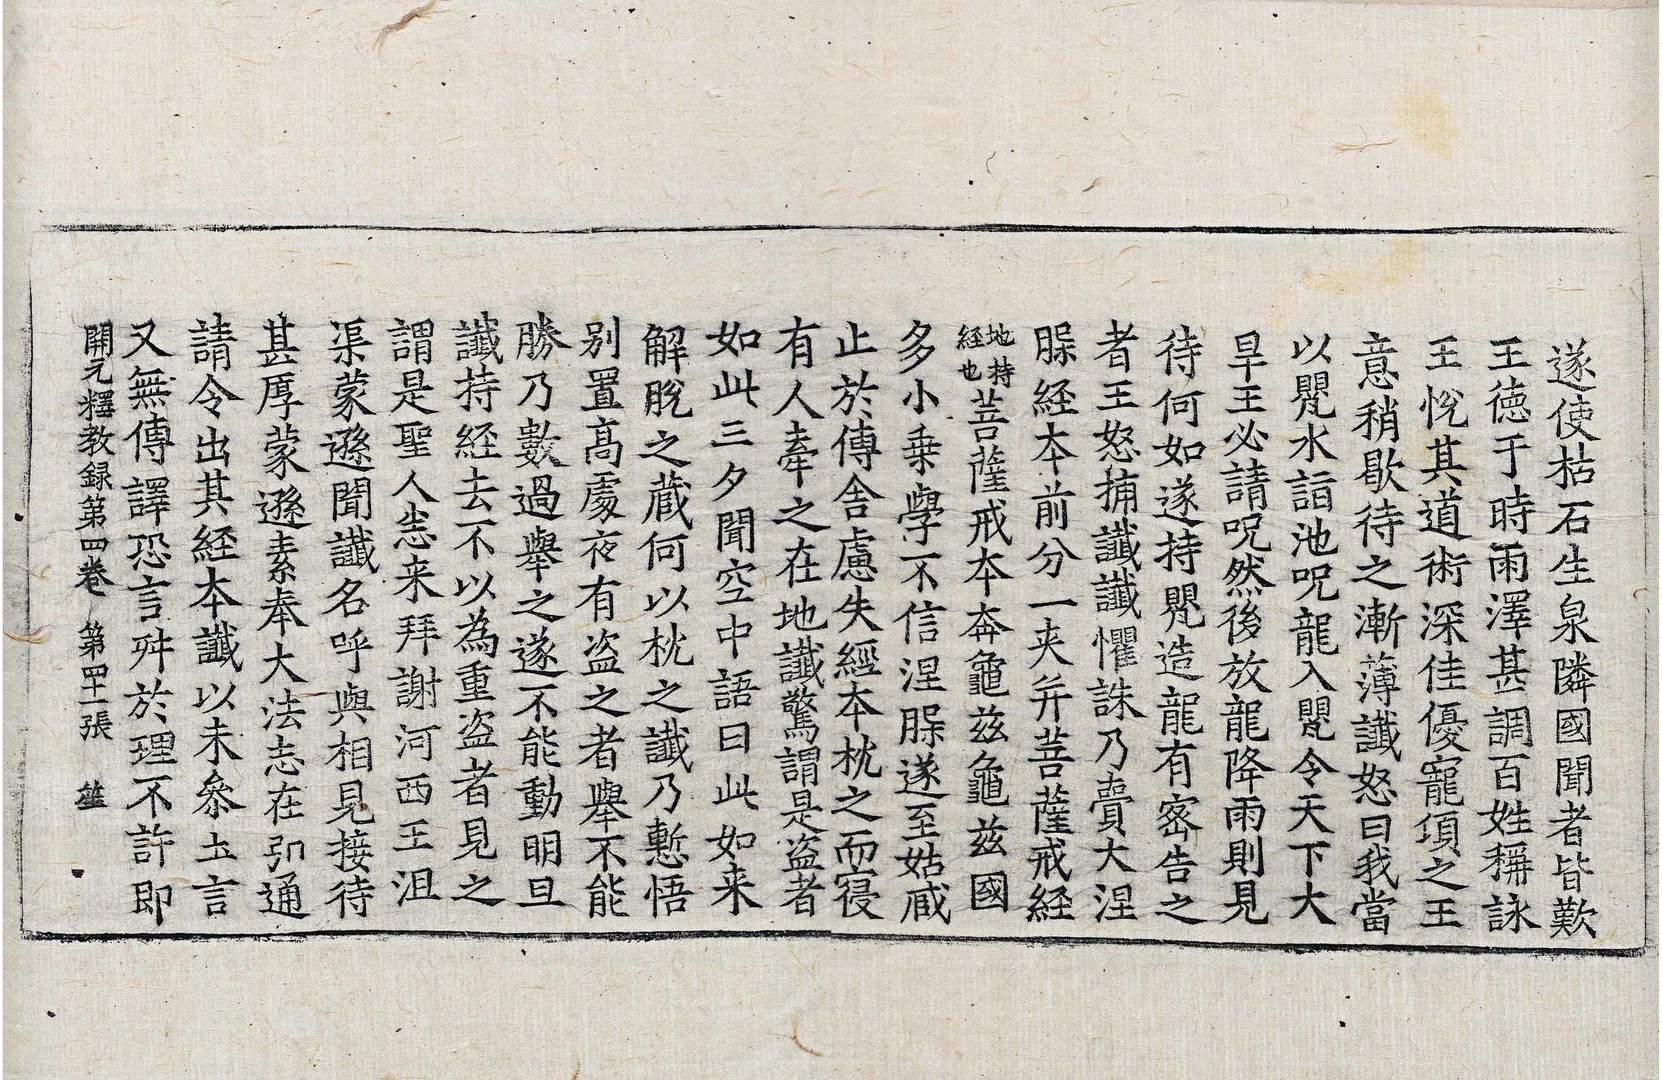 遂使枯石生泉隣國聞者皆歎
王徳于時雨澤甚調百姓稱詠
王悅其道術深佳優寵頃之王
意稍歇待之漸薄讖怒曰我當
以甖水詣池呪龍入甖令天下大
旱王必請呪然後放龍降雨則見
待何如遂持甖造龍有密告之
者王怒捕讖讖懼誅乃賷大涅
槃経本前分一夾并菩薩戒経
地持
経也
菩薩戒本奔龜兹龜兹國
多小乗學不信涅槃遂至姑臧
止於傳舍慮失經本枕之而寝
有人牽之在地讖驚謂是盗者
如此三夕聞空中語曰此如来
解脫之蔵何以枕之讖乃慙悟
别置髙處夜有盗之者舉不能
勝乃數過舉之遂不能動明旦
讖持経去不以為重盗者見之
謂是聖人悉来拜謝河西王沮
渠蒙遜聞讖名呼與相見接待
甚厚蒙遜素奉大法志在弘通
請令出其經本讖以未叅土言
又無傳譯恐言舛於理不許即
開元釋教録第四卷 第四十一張 笙